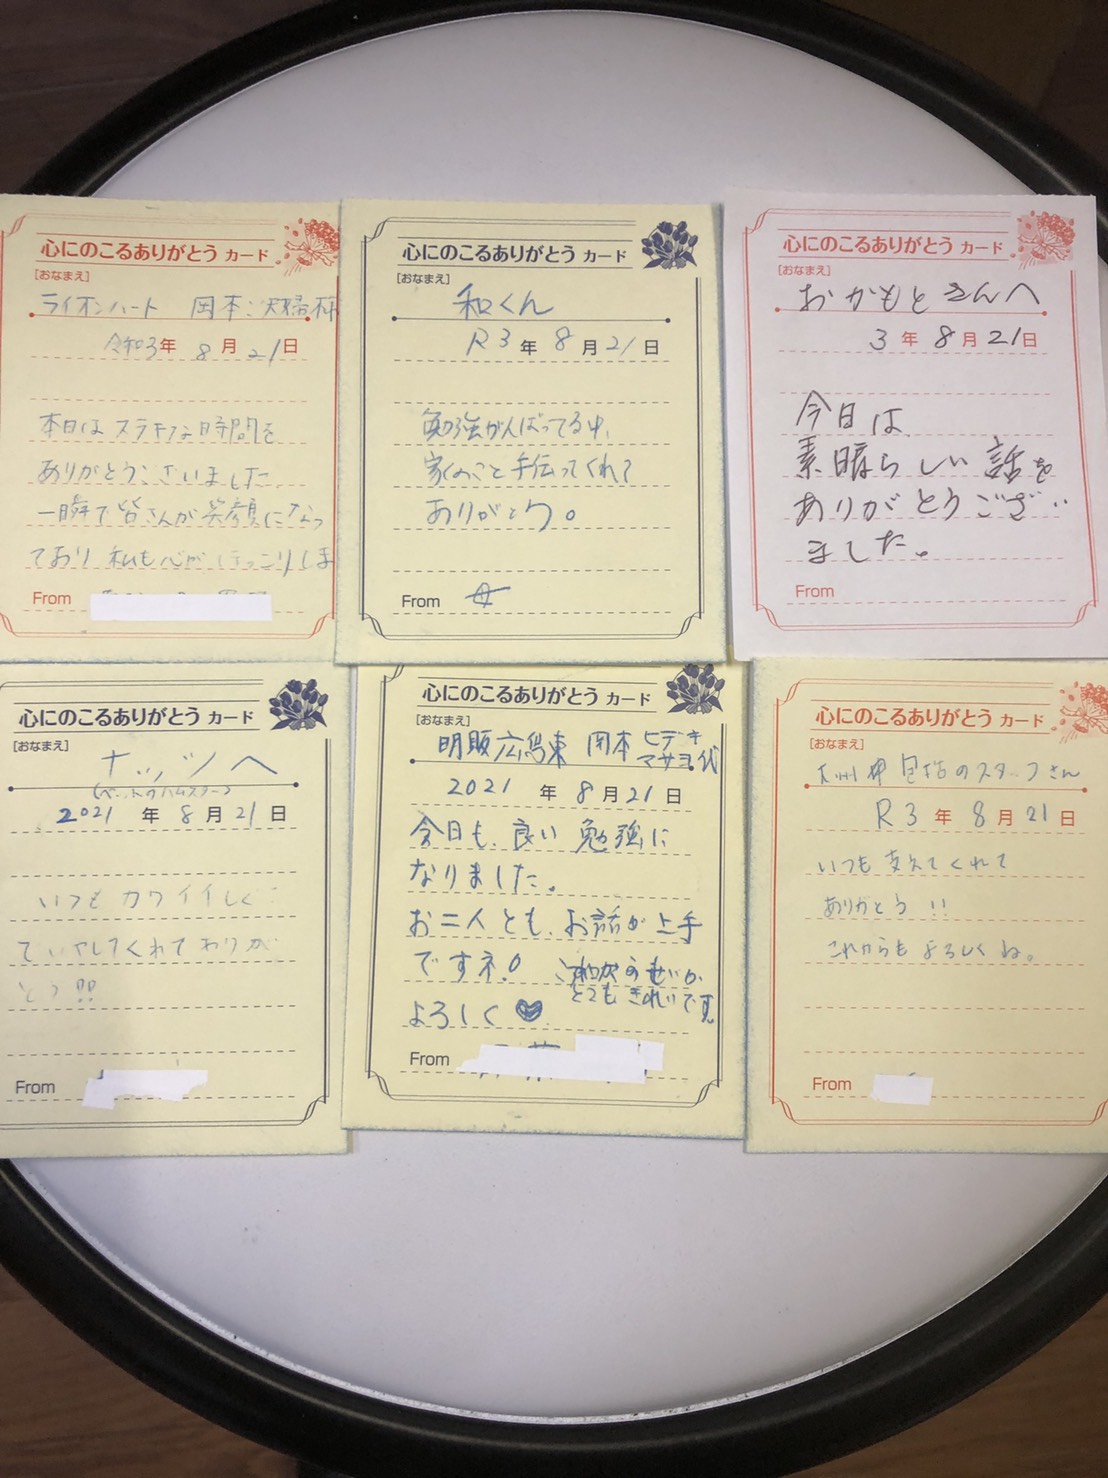 心にのこるありがとう カード
[おなまえ]
ライオンハート 岡本ご夫婦様
令和3年 8月21日
本日はステキな時間を
ありがとうございました
一瞬で皆さんが笑顔になっ
ており 私も心がほっこりしま
From
心にのこるありがとう カード
[おなまえ]
和くん
R3年 8月21日
勉強がんばってる中、
家のこと手伝ってくれて
ありがとう。
From 母
心にのこるありがとう カード
[おなまえ]
おかもとさんへ
3年 8月21日
今日は
素晴らしい話を
ありがとうござい
ました。
From
心にのこるありがとう カード
[おなまえ]
ナッツへ
(ペットのハムスター)
2021年 8月21日
いつもカワイイしく
ていやしてくれてありが
とう!!
From
心にのこるありがとう カード
[おなまえ]
明販広島東 岡本ヒデキ
マサヨ代
2021年 8月21日
今日も、良い勉強に
なりました。
お二人とも、お話が上手
ですネ!
とてもきれいです
よろしく♥
From
心にのこるありがとう カード
[おなまえ]
のスタッフさん
R3年 8月21日
いつも支えてくれて
ありがとう!!
これからもよろしくね。
From